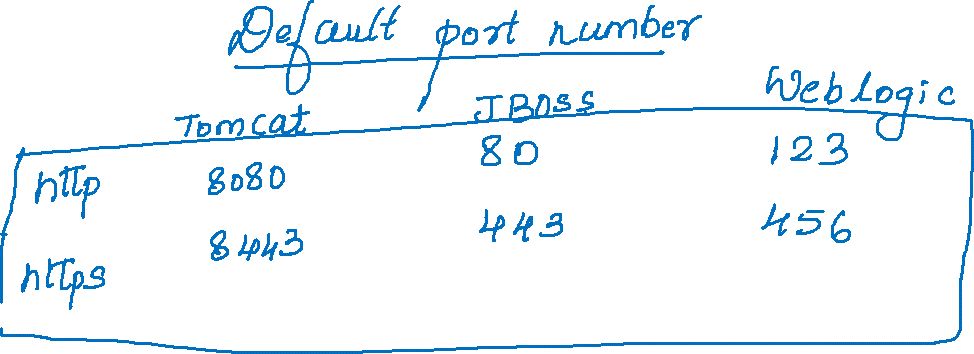 Default port number
Tomcat JBoss Weblogic
http 8080 80 123
https 8443 443 456